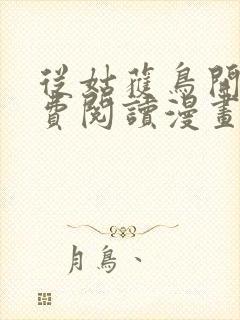 從姑獲鳥開
費閱讀漫畫
月鳥、